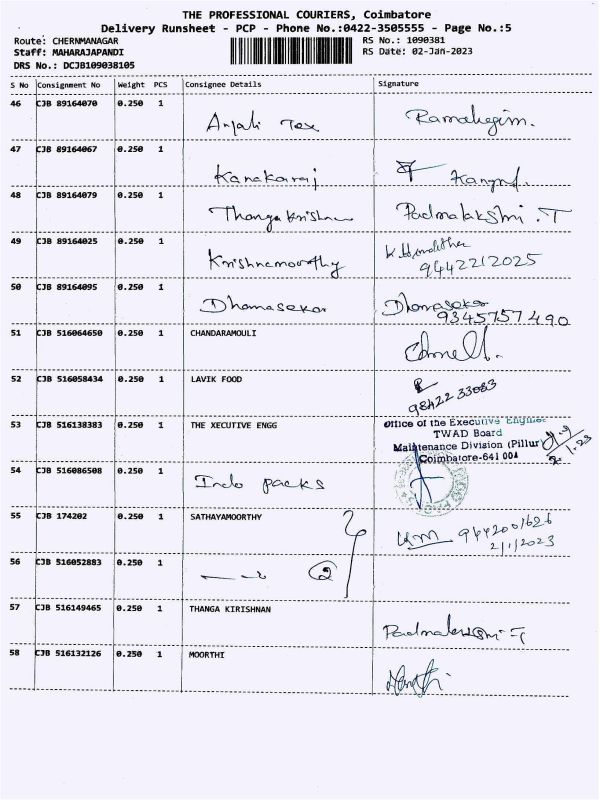 THE PROFESSIONAL COURIERS, Coimbatore
Delivery Runsheet - PCP - Phone No.:0422-3505555 - Page No.:5
Route: CHERNMANAGAR RS No.: 1090381
Staff: MAHARAJAPANDI RS Date: 02-Jan-2023
DRS No.: DCJB109038105
S No Consignment No Weight PCS Consignee Details Signature
46 CJB 89164070 0.250 1
Anjali Tex
47 CJB 89164067 0.250 1
Kanakaraj
48 CJB 89164079 0.250 1
Thangakrishnan Padmalakshmi .T
49 CJB 89164025 0.250 1
Krishnamoorthy 9442212025
50 CJB 89164095 0.250 1
Dhamasekar Dhamasekar
9345757490
51 CJB 516064650 0.250 1 CHANDARAMOULI
52 CJB 516058434 0.250 1 LAVIK FOOD
98422 33083
53 CJB 516138383 0.250 1 THE XECUTIVE ENGG Office of the Executive Engineer
TWAD Board
Maintenance Division (Pillur)
Coimbatore-641 004
2.1.23
54 CJB 516086508 0.250 1
Indo packs
55 CJB 174202 0.250 1 SATHAYAMOORTHY
9442001626
2/1/2023
56 CJB 516052883 0.250 1
57 CJB 516149465 0.250 1 THANGA KIRISHNAN
Padmalakshmi T
58 CJB 516132126 0.250 1 MOORTHI